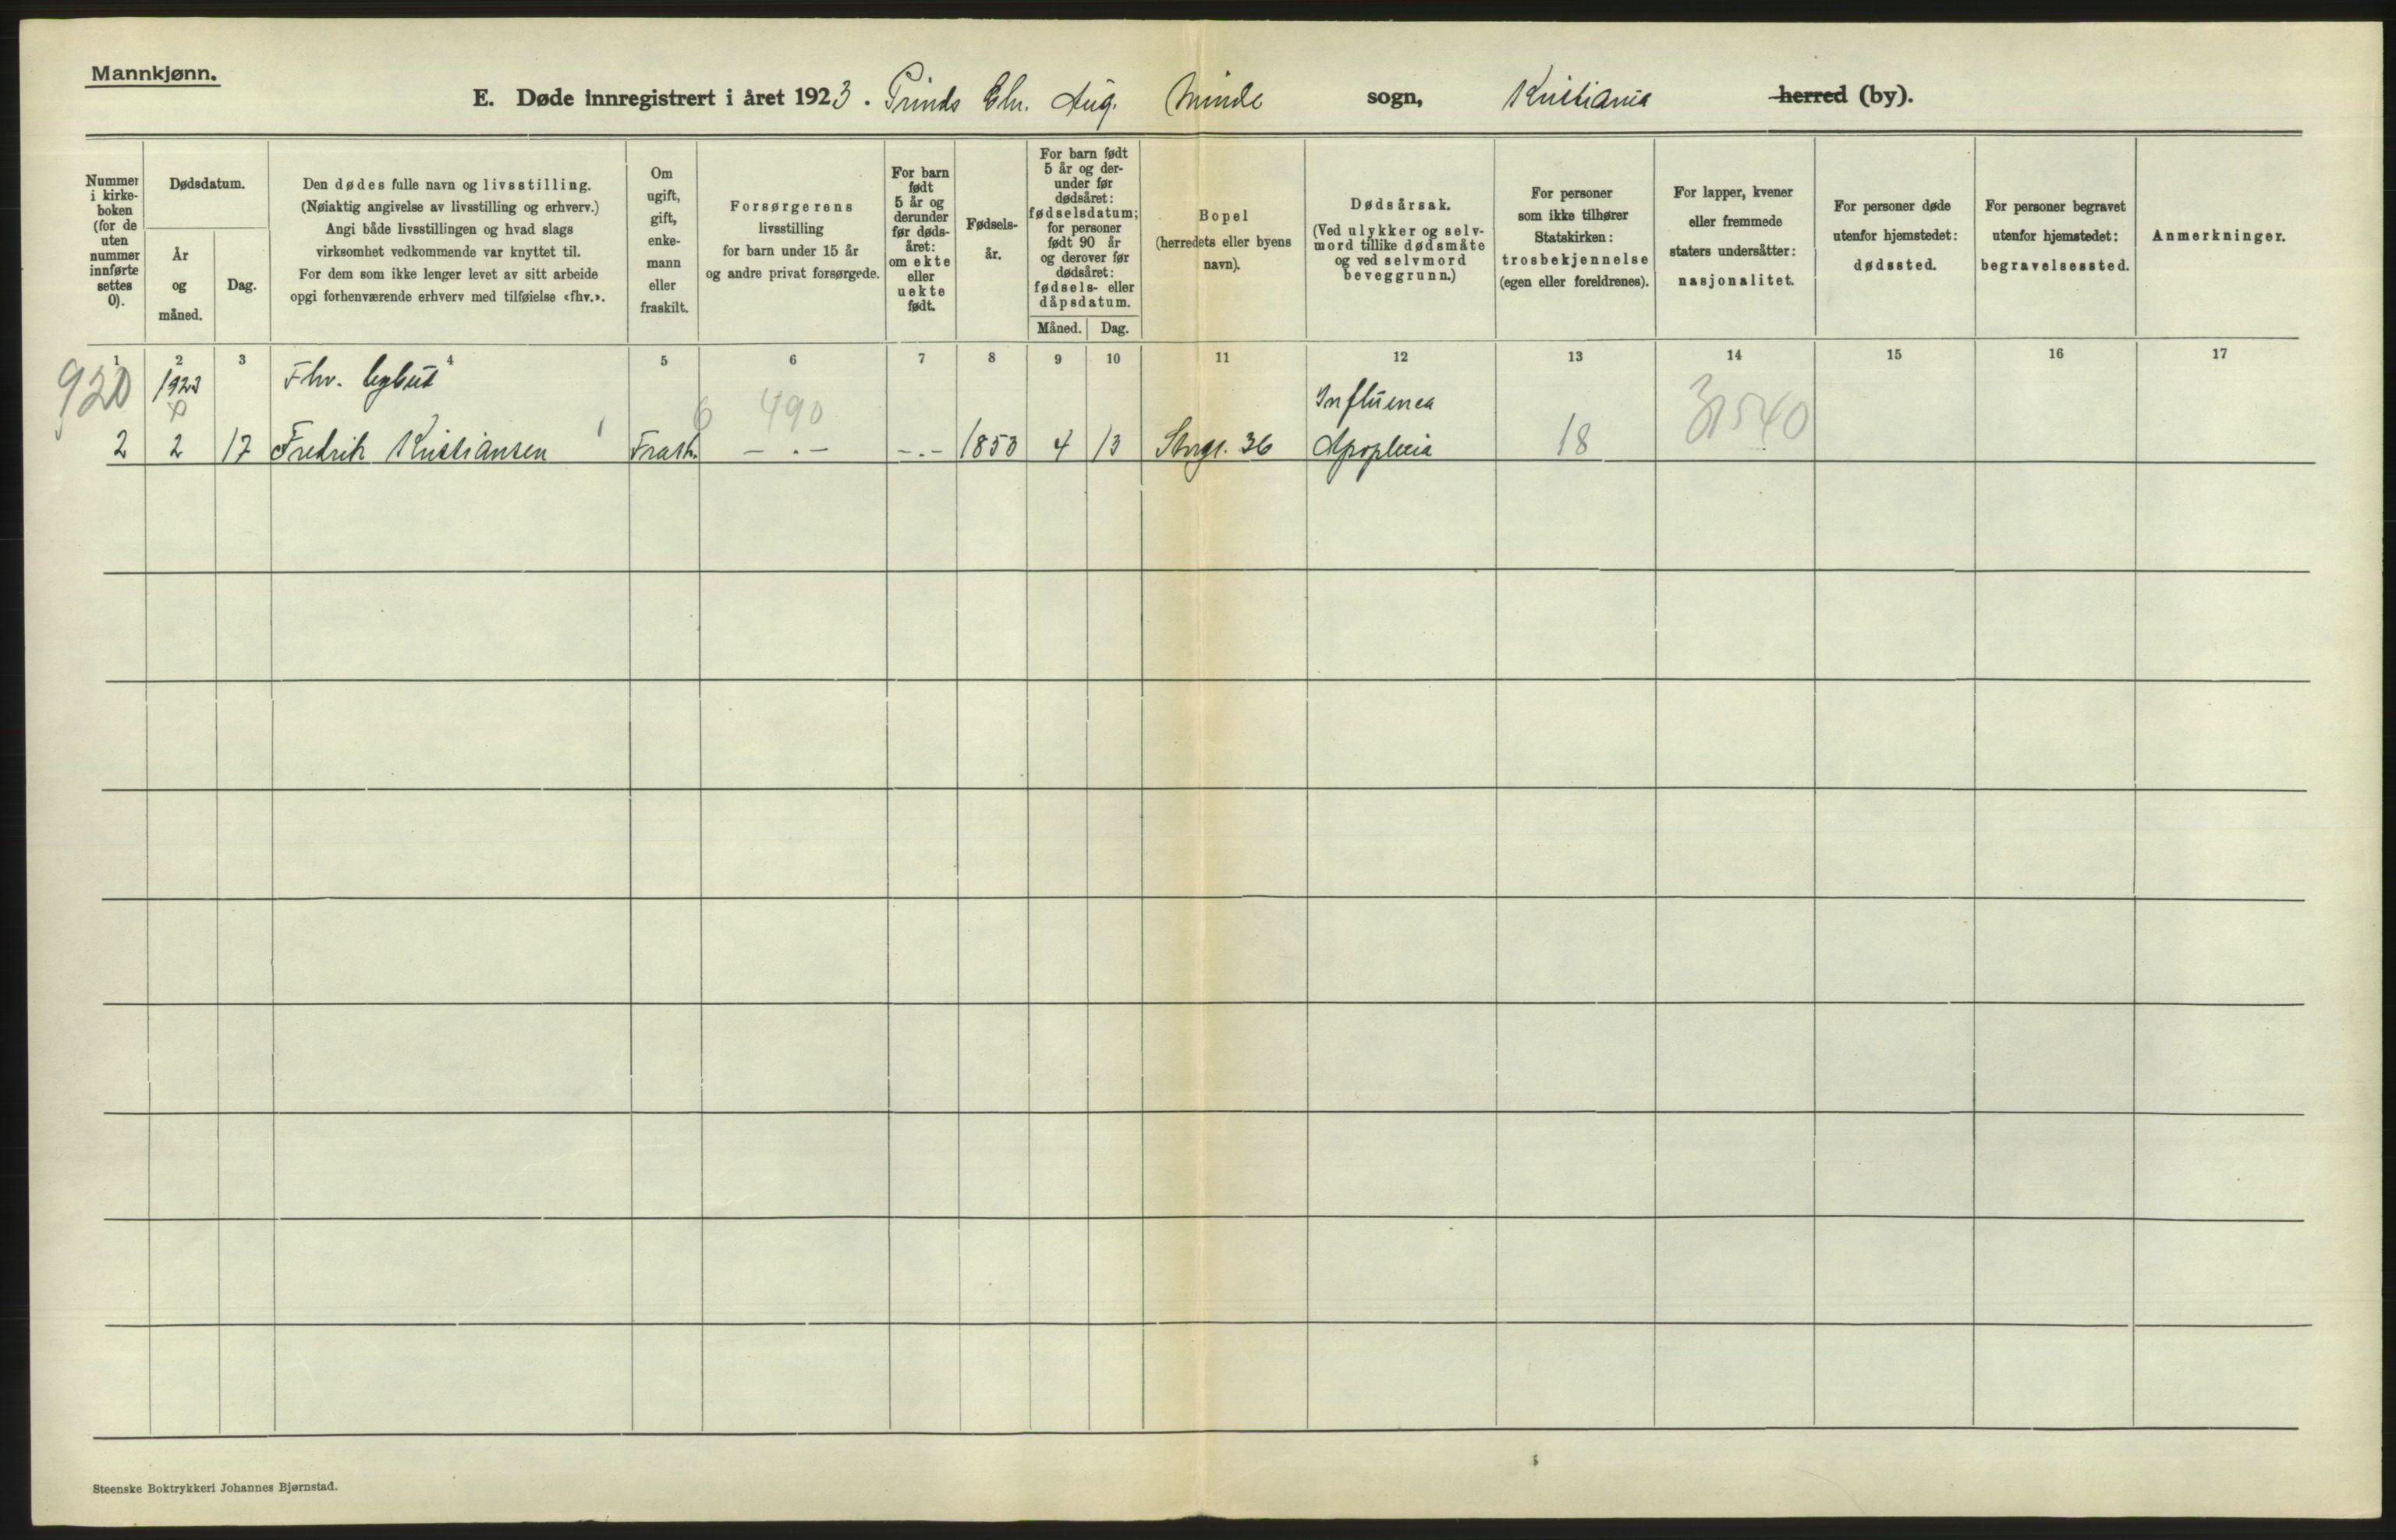 Mannkjønn.
E. Døde innregistrert i året 1923. Prinds Chr. Aug. Minde sogn, Kristiania herred (by).
Nummer
i kirke-
boken
(for de
uten
nummer
innførte
settes
0).
Dødsdatum.
År
og
måned.
Dag.
Den dødes fulle navn og livsstilling.
(Nøiaktig angivelse av livsstilling og erhverv.)
Angi både livsstillingen og hvad slags
virksomhet vedkommende var knyttet til.
For dem som ikke lenger levet av sitt arbeide
opgi forhenværende erhverv med tilføielse «fhv.».
Om
ugift,
gift,
enke-
mann
eller
fraskilt.
Forsørgerens
livsstilling
for barn under 15 år
og andre privat forsørgede.
For barn
født
5 år og
derunder
før døds-
året:
om ekte
eller
uekte
født.
Fødsels-
år.
For barn født
5 år og der-
under før
dødsåret:
fødselsdatum;
for personer
født 90 år
og derover før
dødsåret:
fødsels- eller
dåpsdatum.
Måned. Dag.
Bopel
(herredets eller byens
navn).
Dødsårsak.
(Ved ulykker og selv-
mord tillike dødsmåte
og ved selvmord
beveggrunn.)
For personer
som ikke tilhører
Statskirken:
trosbekjennelse
(egen eller foreldrenes).
For lapper, kvener
eller fremmede
staters undersåtter:
nasjonalitet.
For personer døde
utenfor hjemstedet:
dødssted.
For personer begravet
utenfor hjemstedet:
begravelsessted.
Anmerkninger.
1 2 3 4 5 6 7 8 9 10 11 12 13 14 15 16 17
920 1923 Fhv. bybud 6 490 Influenca
2 2 17 Fredrik Kristiansen Frask. — . — - . - 1853 4 13 Storgt. 36 Apoplexia 18
Steenske Boktrykkeri Johannes Bjørnstad.